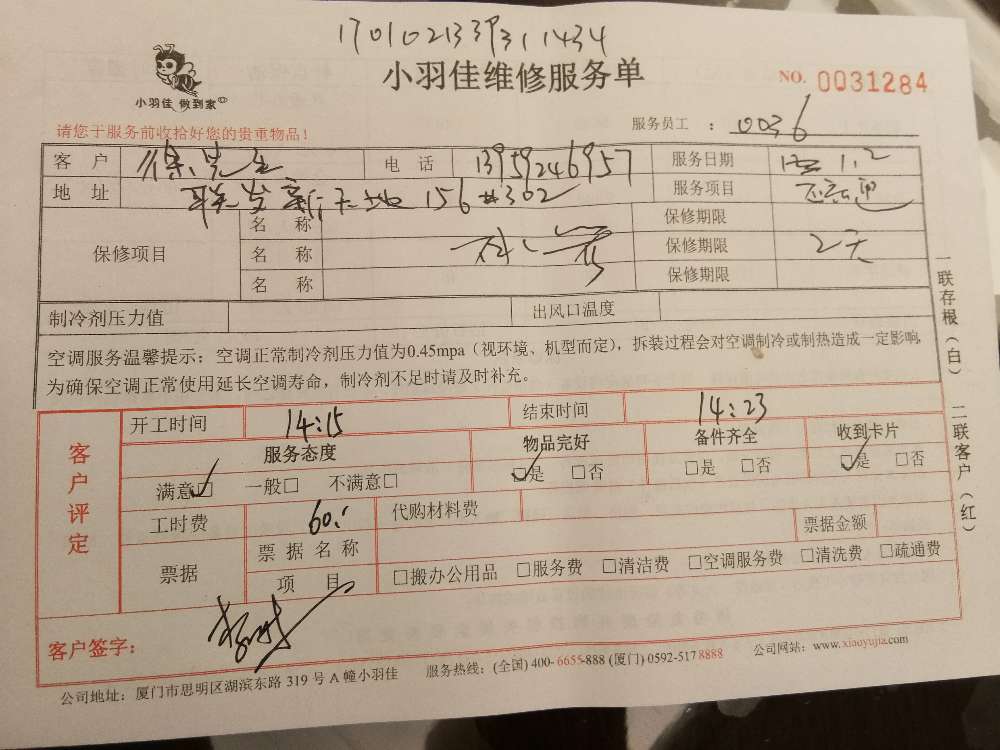 1701021339311434
小羽佳 做到家
小羽佳维修服务单
NO. 0031284
请您于服务前收拾好您的贵重物品！
服务员工 ： 0036
客 户 徐先生 电 话 13959246957 服务日期 1.2
地 址 联发新天地 156#302 服务项目
保修项目
名 称 保修期限
名 称 保修期限 2天
名 称 保修期限
制冷剂压力值 出风口温度
空调服务温馨提示：空调正常制冷剂压力值为0.45mpa（视环境、机型而定），拆装过程会对空调制冷或制热造成一定影响，
为确保空调正常使用延长空调寿命，制冷剂不足时请及时补充。
客户评定
开工时间 14:15 结束时间 14:23
服务态度 物品完好 备件齐全 收到卡片
满意□ 一般□ 不满意□ □是 □否 □是 □否 □是 □否
工时费 60 代购材料费
票据 票据名称 票据金额
项 目 □搬办公用品 □服务费 □清洁费 □空调服务费 □清洗费 □疏通费
客户签字：
公司地址：厦门市思明区湖滨东路 319 号 A 幢小羽佳 服务热线：(全国) 400-6655-888 (厦门) 0592-5178888 公司网站：www.xiaoyujia.com
一联存根（白） 二联客户（红）